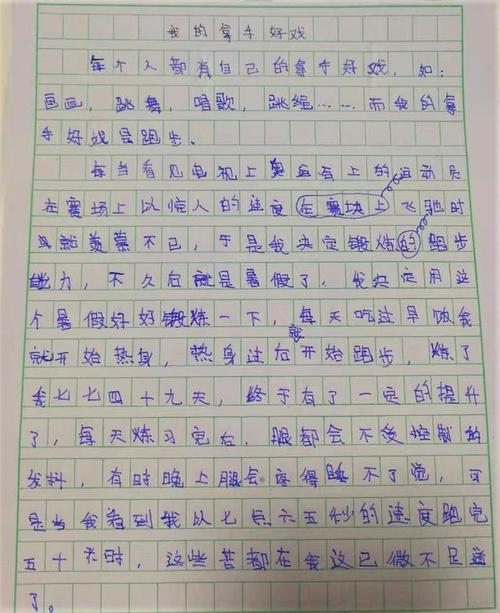 我的拿手好戏
每个人都有自己的拿手好戏，如：
画画，跳舞，唱歌，跳绳……而我的拿
手好戏是跑步。
每当看见电视上奥运会上的运动员
在赛场上以惊人的速度在赛场上飞驰时
我就羡慕不已，于是我决定锻炼的跑步
能力，不久后就是暑假了，我决定用这
个暑假好好锻炼一下，每天吃过早饭我
就开始热身，热身过后就开始跑步，练了
七七四十九天，终于有了一定的提升
了，每天炼习完后，腿都会不受控制的
发抖，有时晚上腿会疼得睡不了觉，可
是当我看到我以七点六五秒的速度跑完
五十米时，这些苦都在我这已微不足道
了。